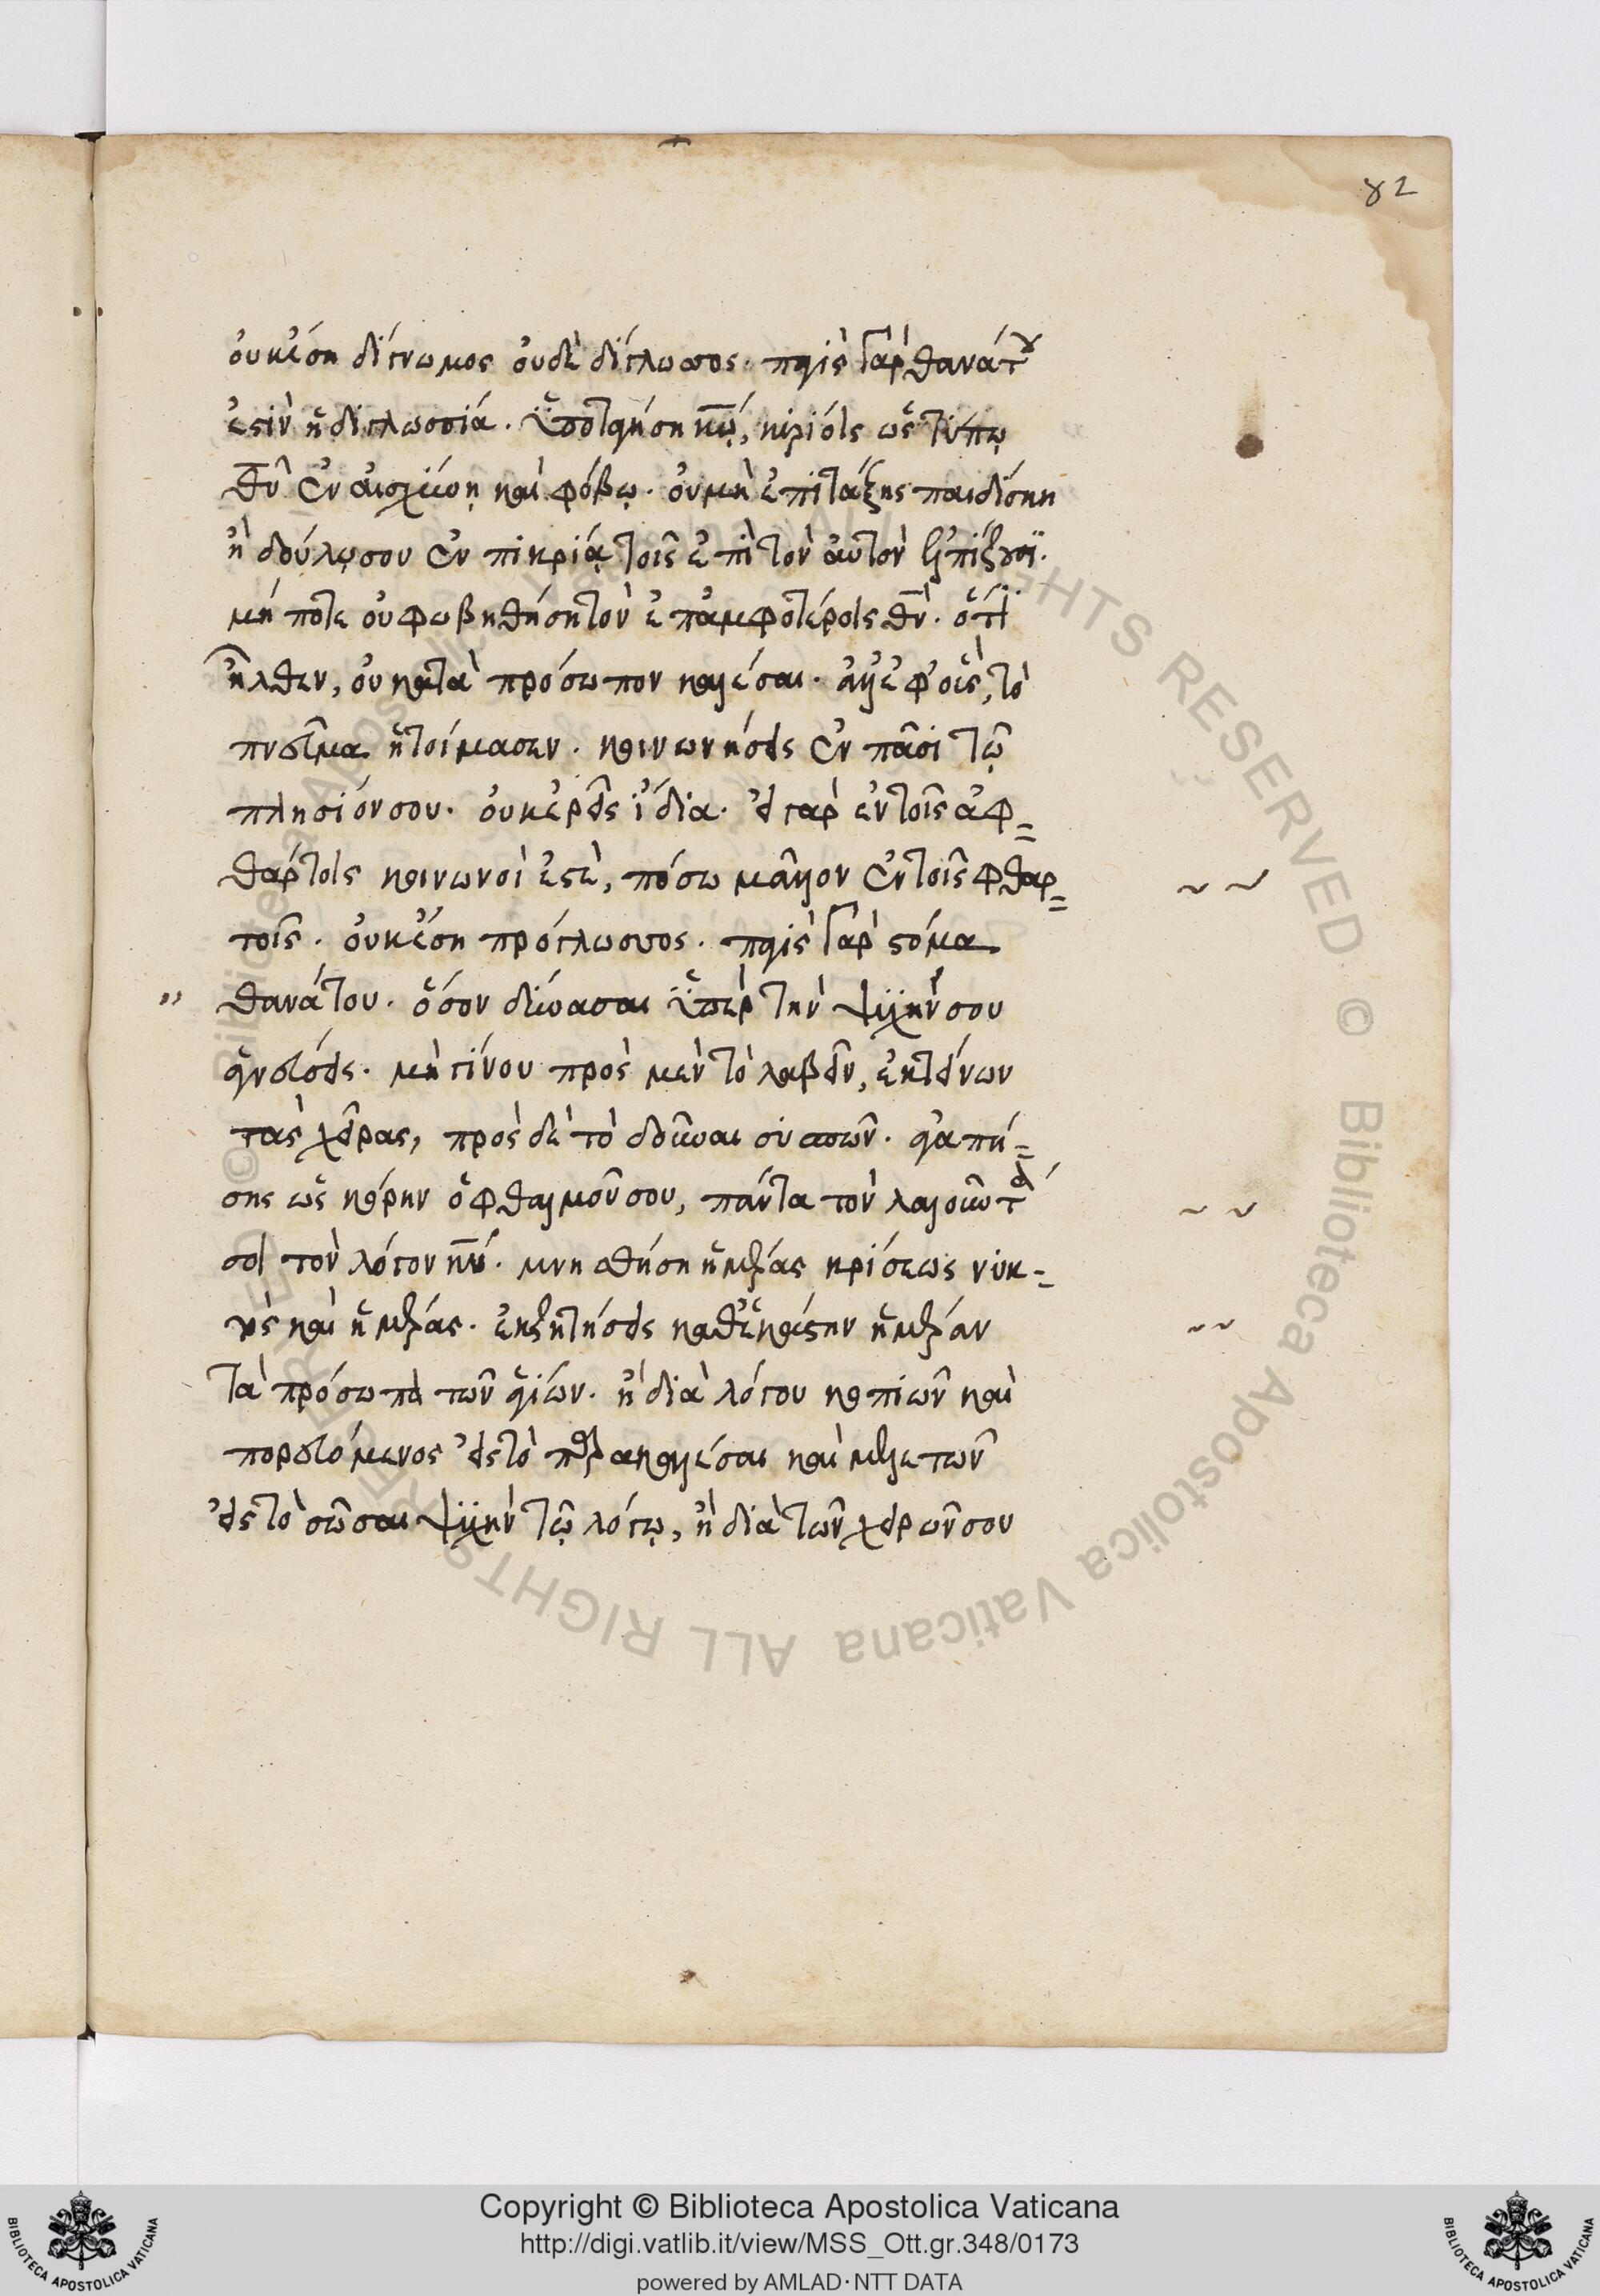 82
οὐκ ἔση δίγνωμος οὐδὲ δίγλωσσος· παγὶς γὰρ θανάτου
ἐστὶν ἡ διγλωσσία. ὑποταγήση κῶ, κυρίοις ὡς τύπω
θῦ ἐν αἰσχύνη καὶ φόβω· οὐ μὴ ἐπιτάξης παιδίσκη
ἢ δούλω σου ἐν πικρία τοῖς ἐπὶ τὸν αὐτὸν ἐλπίζουσι·
μή ποτε οὐ φωβηθήση τὸν ἐπ' ἀμφοτέροις θν· ὅτι
ἦλθεν, οὐ κατὰ πρόσωπον καλέσαι· ἀλλ' ἐφ' οἷς, τὸ
πνεῦμα ἡτοίμασεν. κοινωνήσεις ἐν πᾶσι τῶ
πλησίον σου· οὐκ ἐρεῖς ἴδια· εἰ γὰρ ἐν τοῖς ἀφ=
θάρτοις κοινωνοί ἐστε, πόσω μᾶλλον ἐν τοῖς φθαρ=
τοῖς. οὐκ ἔση πρόγλωσσος· παγὶς γὰρ στόμα
" θανάτου. ὅσον δύνασαι ὑπὲρ τὴν ψυχήν σου
ἁγνεύσεις· μὴ γίνου πρὸς μὲν τὸ λαβεῖν, ἐκτείνων
τὰς χεῖρας, πρὸς δὲ τὸ δοῦναι συσπῶν· ἀγαπή=
σης ὡς κόρην ὀφθαλμοῦ σου, πάντα τὸν λαλοῦντά
σοι τὸν λόγον κυ· μνησθήση ἡμέρας κρίσεως νυκ=
τὸς καὶ ἡμέρας· ἐκζητήσεις καθ' ἑκάστην ἡμέραν
τὰ πρόσωπα τῶν ἁγίων· ἢ διὰ λόγου κοπιῶν καὶ
πορευόμενος εἰς τὸ παρακαλέσαι καὶ μελετῶν
εἰς τὸ σῶσαι ψυχὴν τῶ λόγω, ἢ διὰ τῶν χειρῶν σου
© Biblioteca Apostolica Vaticana ALL RIGHTS RESERVED
Copyright © Biblioteca Apostolica Vaticana
http://digi.vatlib.it/view/MSS_Ott.gr.348/0173
powered by AMLAD·NTT DATA
BIBLIOTECA APOSTOLICA VATICANA
BIBLIOTECA APOSTOLICA VATICANA